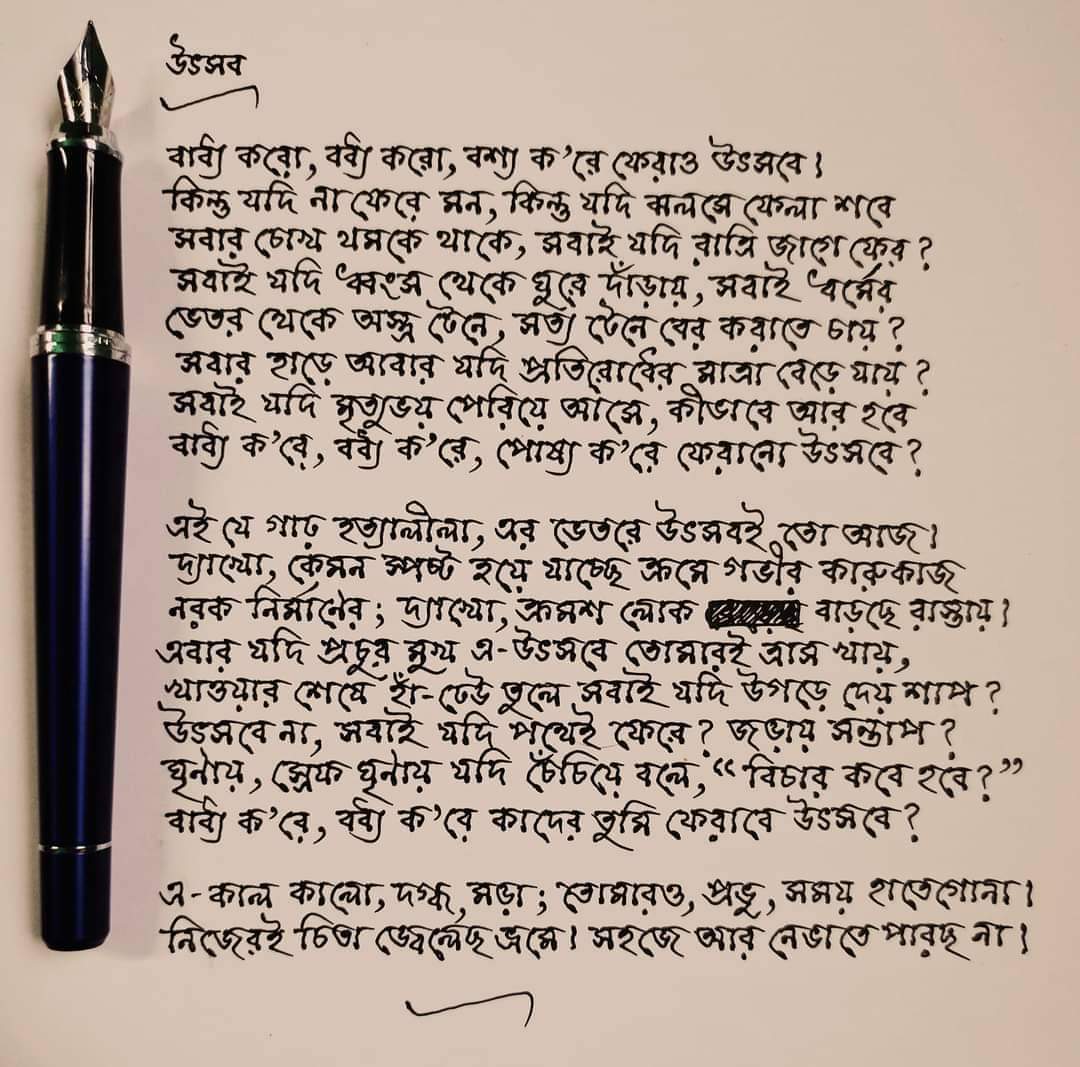 উৎসব
বাধ্য করো, বধ্য করো, বশ্য ক'রে ফেরাও উৎসবে।
কিন্তু যদি না ফেরে মন, কিন্তু যদি ঝলসে ফেলা শবে
সবার চোখ থমকে থাকে, সবাই যদি রাত্রি জাগে ফের?
সবাই যদি ধ্বংস থেকে ঘুরে দাঁড়ায়, সবাই ধর্মের
ভেতর থেকে অস্ত্র টেনে, সত্য টেনে বের করাতে চায়?
সবার হাড়ে আবার যদি প্রতিরোধের মাত্রা বেড়ে যায়?
সবাই যদি মৃত্যুভয় পেরিয়ে আসে, কীভাবে আর হবে
বাধ্য ক'রে, বধ্য ক'রে, পোষ্য ক'রে ফেরানো উৎসবে?
এই যে গাঢ় হত্যালীলা, এর ভেতরে উৎসবই তো আজ।
দ্যাখো, কেমন স্পষ্ট হয়ে যাচ্ছে ক্রমে গভীর কারুকাজ
নরক নির্মাণের; দ্যাখো, ক্রমশ লোক বাড়ছে রাস্তায়।
এবার যদি প্রচুর মুখ এ-উৎসবে তোমারই ত্রাস খায়,
খাওয়ার শেষে হাঁ-ঢেউ তুলে সবাই যদি উগড়ে দেয় শাপ?
উৎসবে না, সবাই যদি পথেই ফেরে? জড়ায় সন্তাপ?
ঘৃণায়, স্রেফ ঘৃণায় যদি চেঁচিয়ে বলে, “বিচার কবে হবে?”
বাধ্য ক'রে, বধ্য ক'রে কাদের তুমি ফেরাবে উৎসবে?
এ-কাল কালো, দগ্ধ, মড়া; তোমারও, প্রভু, সময় হাতেগোনা।
নিজেরই চিতা জ্বেলেছ ভ্রমে। সহজে আর নেভাতে পারছ না।